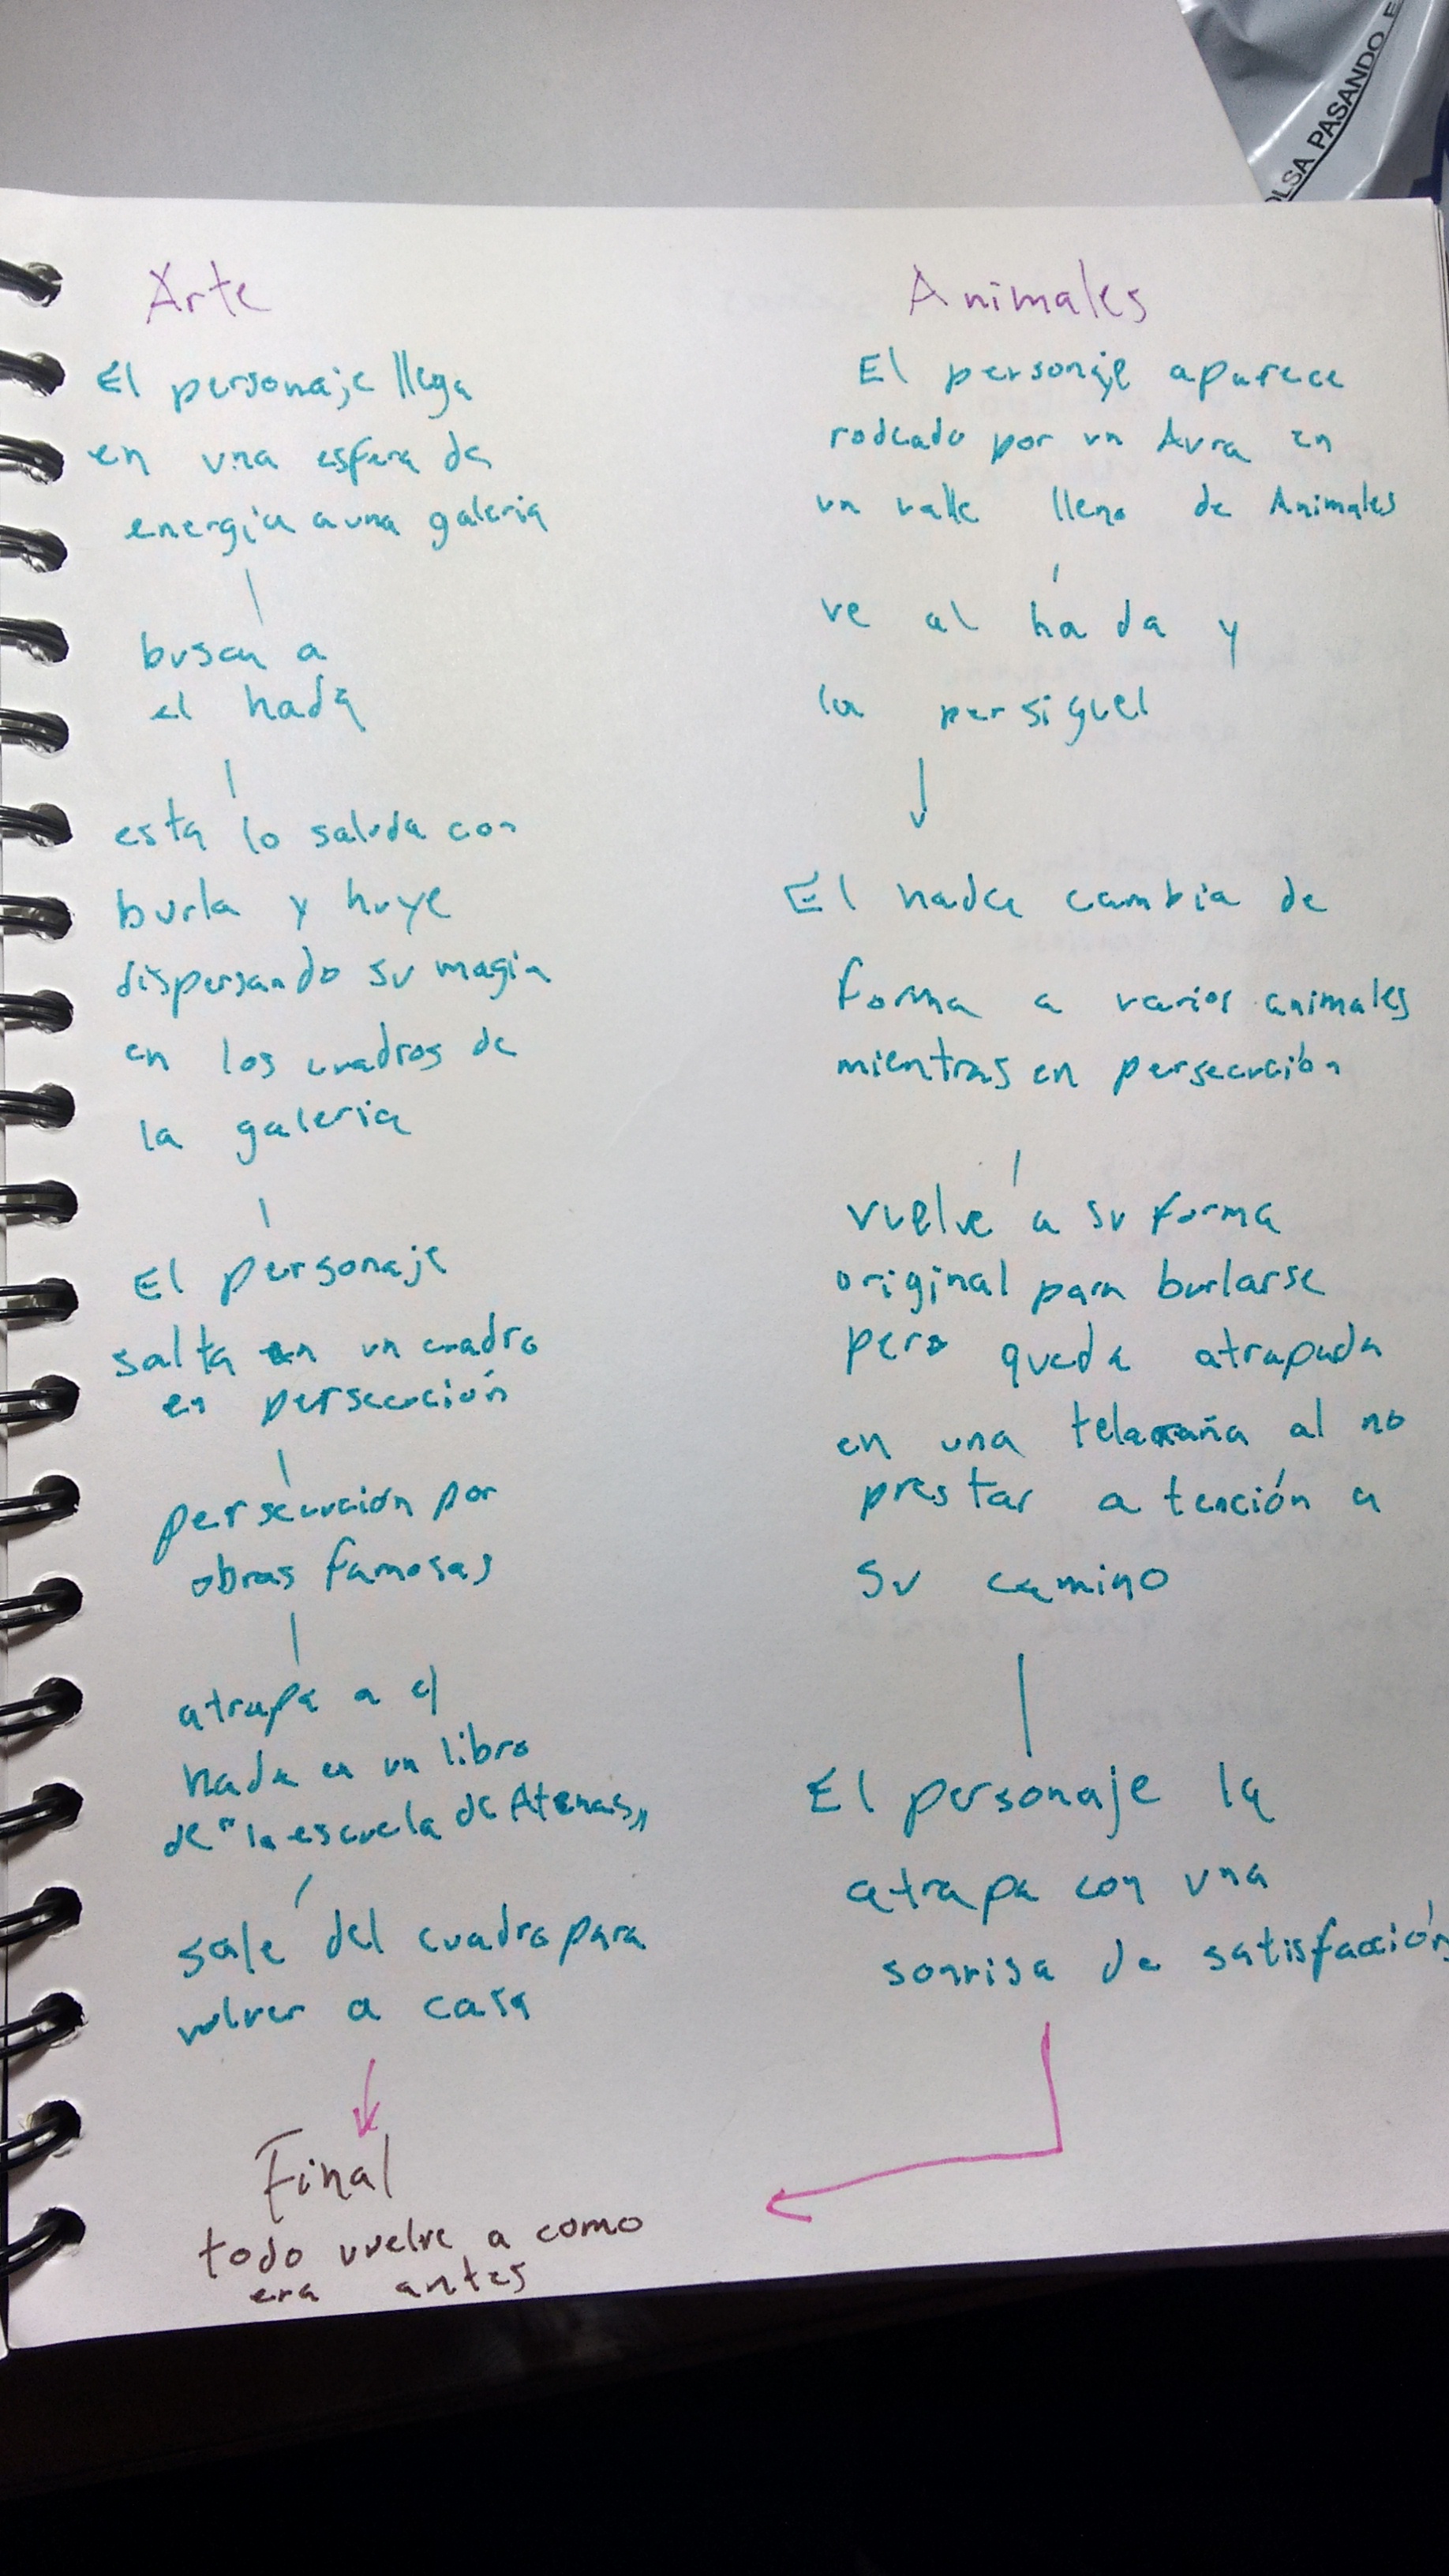 OLSA PASANDO E
Arte
El personaje llega
en una esfera de
energia a una galeria
busca a
el hada
esta lo saluda con
burla y huye
dispersando su magia
en los cuadros de
la galeria
El personaje
salta en un cuadro
en persecución
persecución por
obras famosas
atrapa a el
hada en un libro
de "la escuela de Atenas"
sale del cuadro para
volver a casa
Final
todo vuelve a como
era antes
Animales
El personaje aparece
rodeado por un Aura en
un valle lleno de Animales
ve al hada y
la persigue
El hada cambia de
forma a varios animales
mientras en persecución
vuelve a su forma
original para burlarse
pero queda atrapada
en una telaraña al no
prestar atención a
su camino
El personaje la
atrapa con una
sonrisa de satisfacción